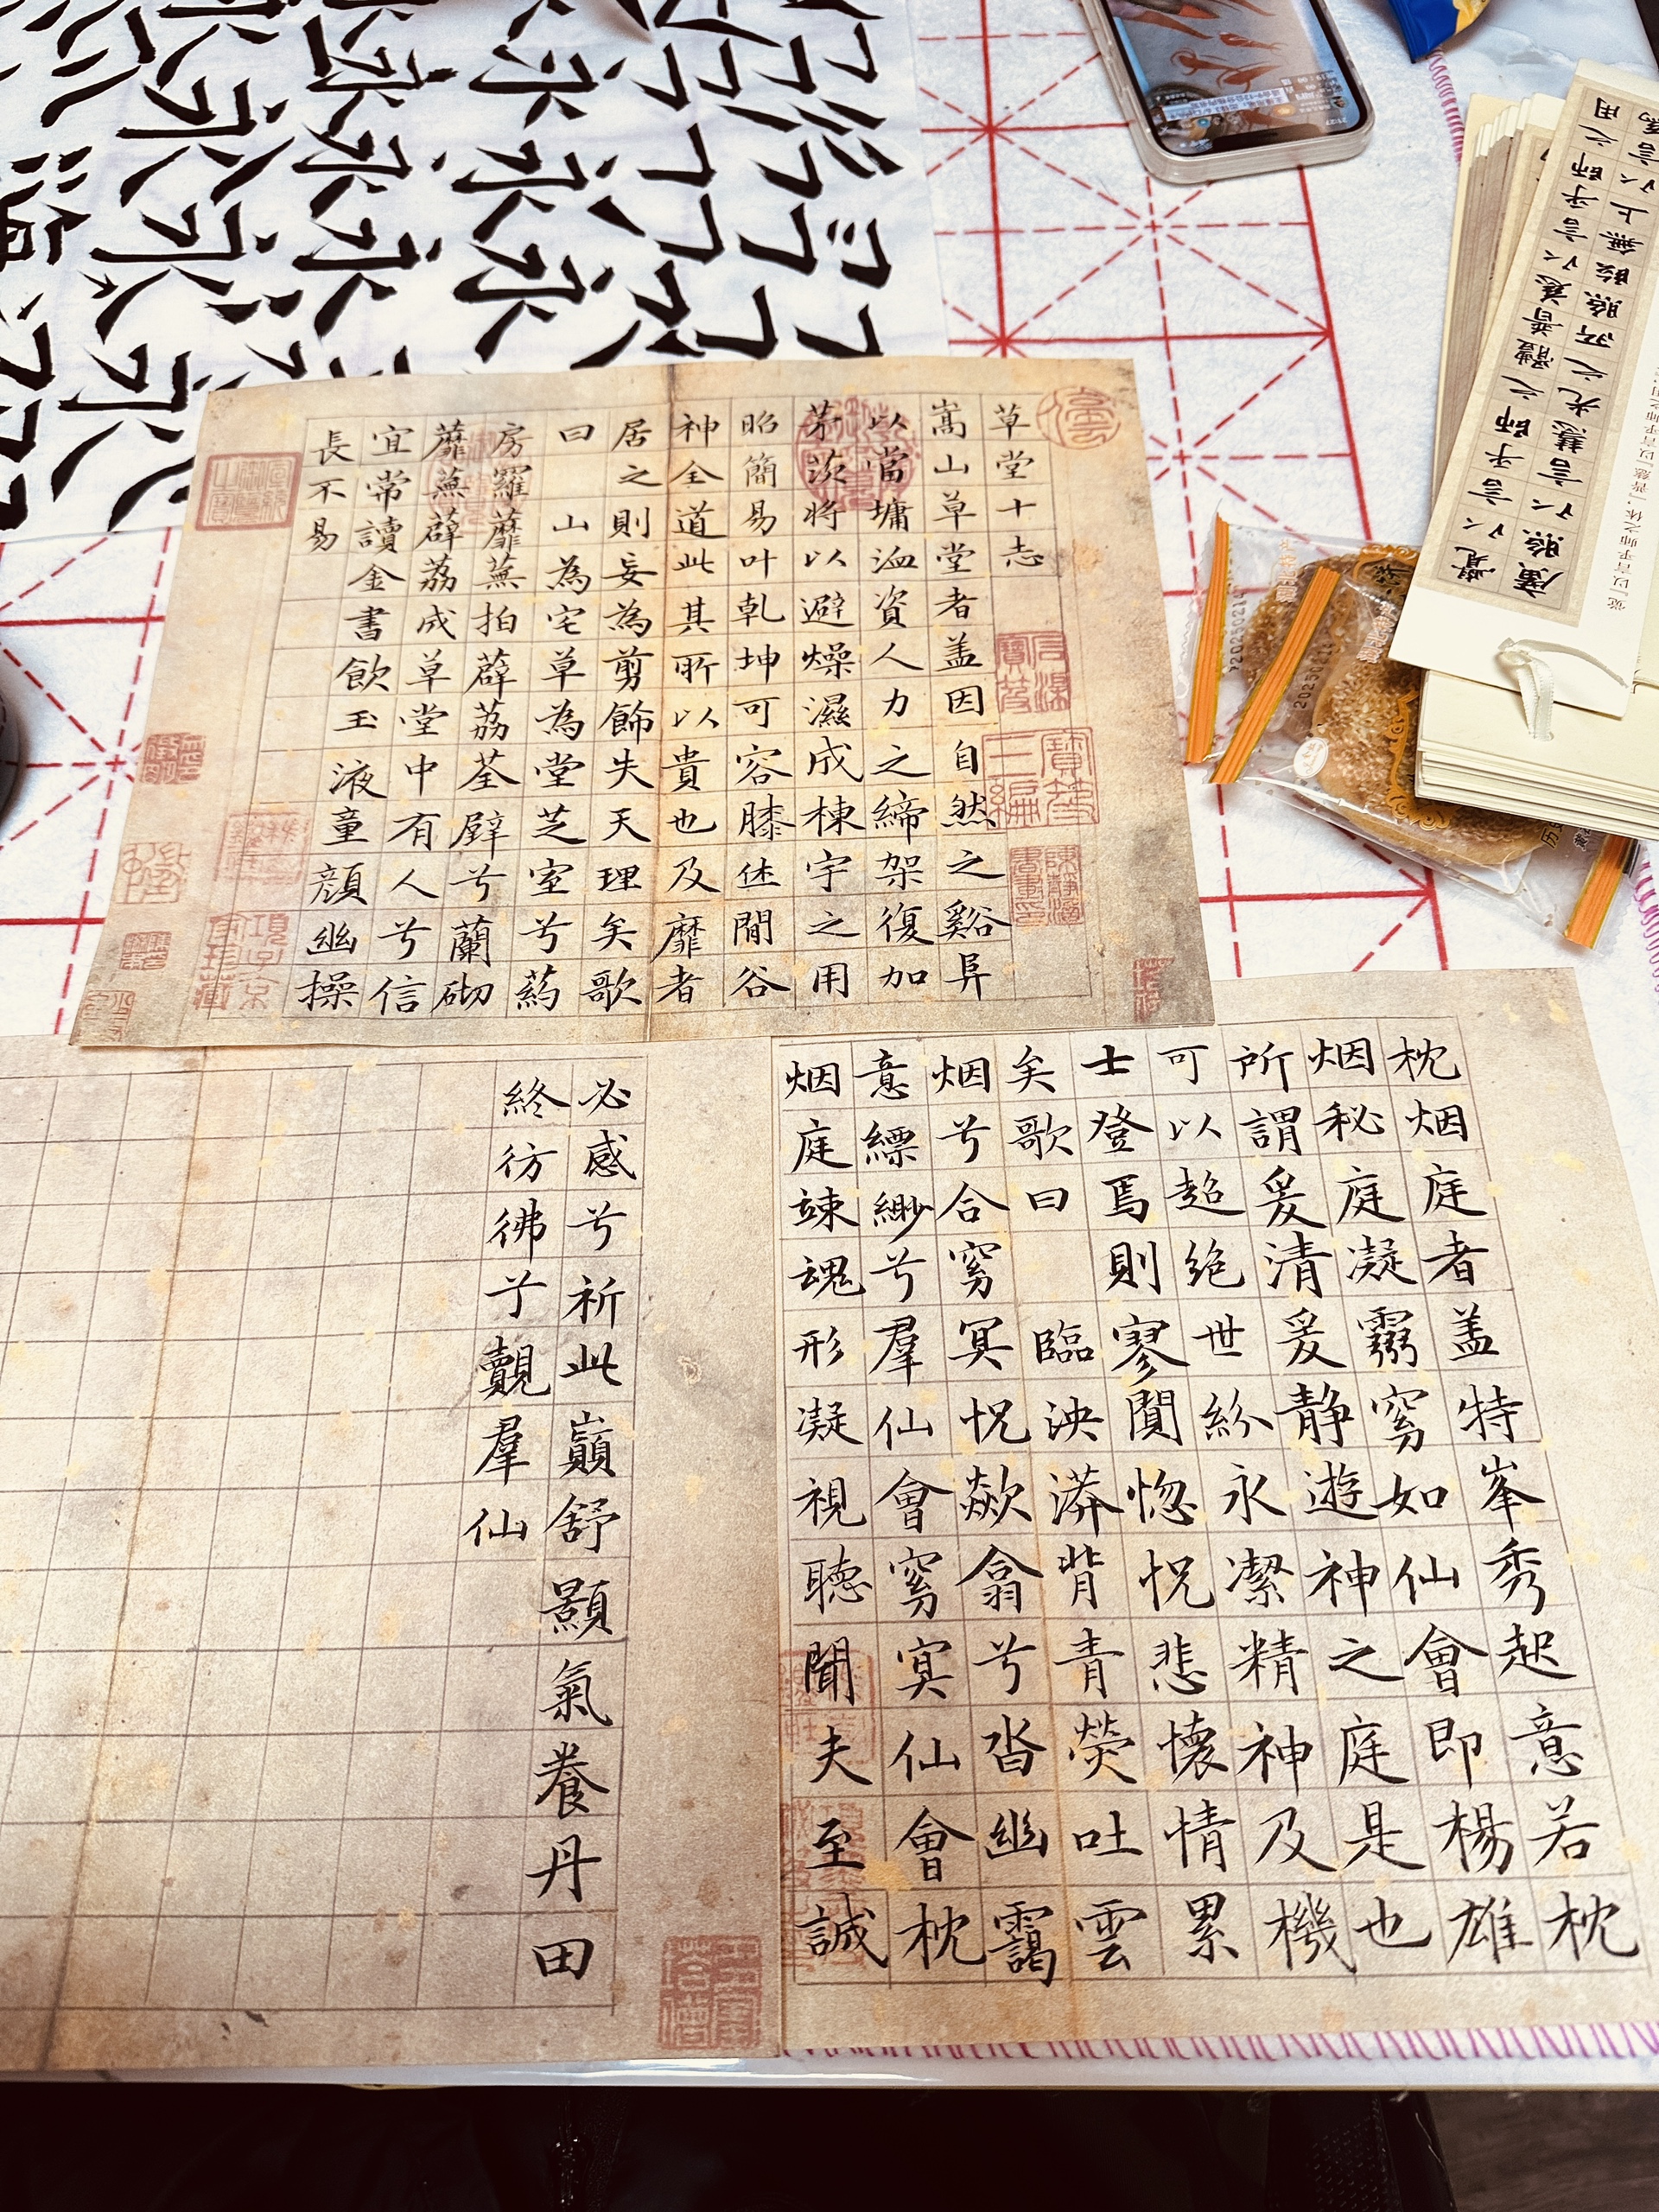 草堂十志
嵩山草堂者盖因自然之谿阜
以當墉洫資人力之締架復加
茅茨將以避燥濕成棟宇之用
昭簡易叶乾坤可容膝休閒谷
神全道此其所以貴也及靡者
居之則妄為剪飾失天理矣歌
曰 山為宅草為堂芝室兮葯
房羅蘼蕪拍薜荔荃壁兮蘭砌
蘼蕪薜荔成草堂中有人兮信
宜常讀金書飲玉液童顏幽操
長不易
枕烟庭者盖特峯秀起意若枕
烟秘庭凝霧窈如仙會即楊雄
所謂爰清爰静遊神之庭是也
可以超絶世紛永潔精神及機
士登焉則寥闃惚怳悲懷情累
矣歌曰 臨泱漭背青熒吐雲
烟兮合窈冥怳歘翕兮沓幽靄
意縹緲兮羣仙會窈冥仙會枕
烟庭竦魂形凝視聽聞夫至誠
必感兮祈此巔舒顥氣養丹田
終彷彿兮覿羣仙
覺以言乎師之體普慈以言乎師之用
廣照以言慧光之所照臨無上以言
20250214